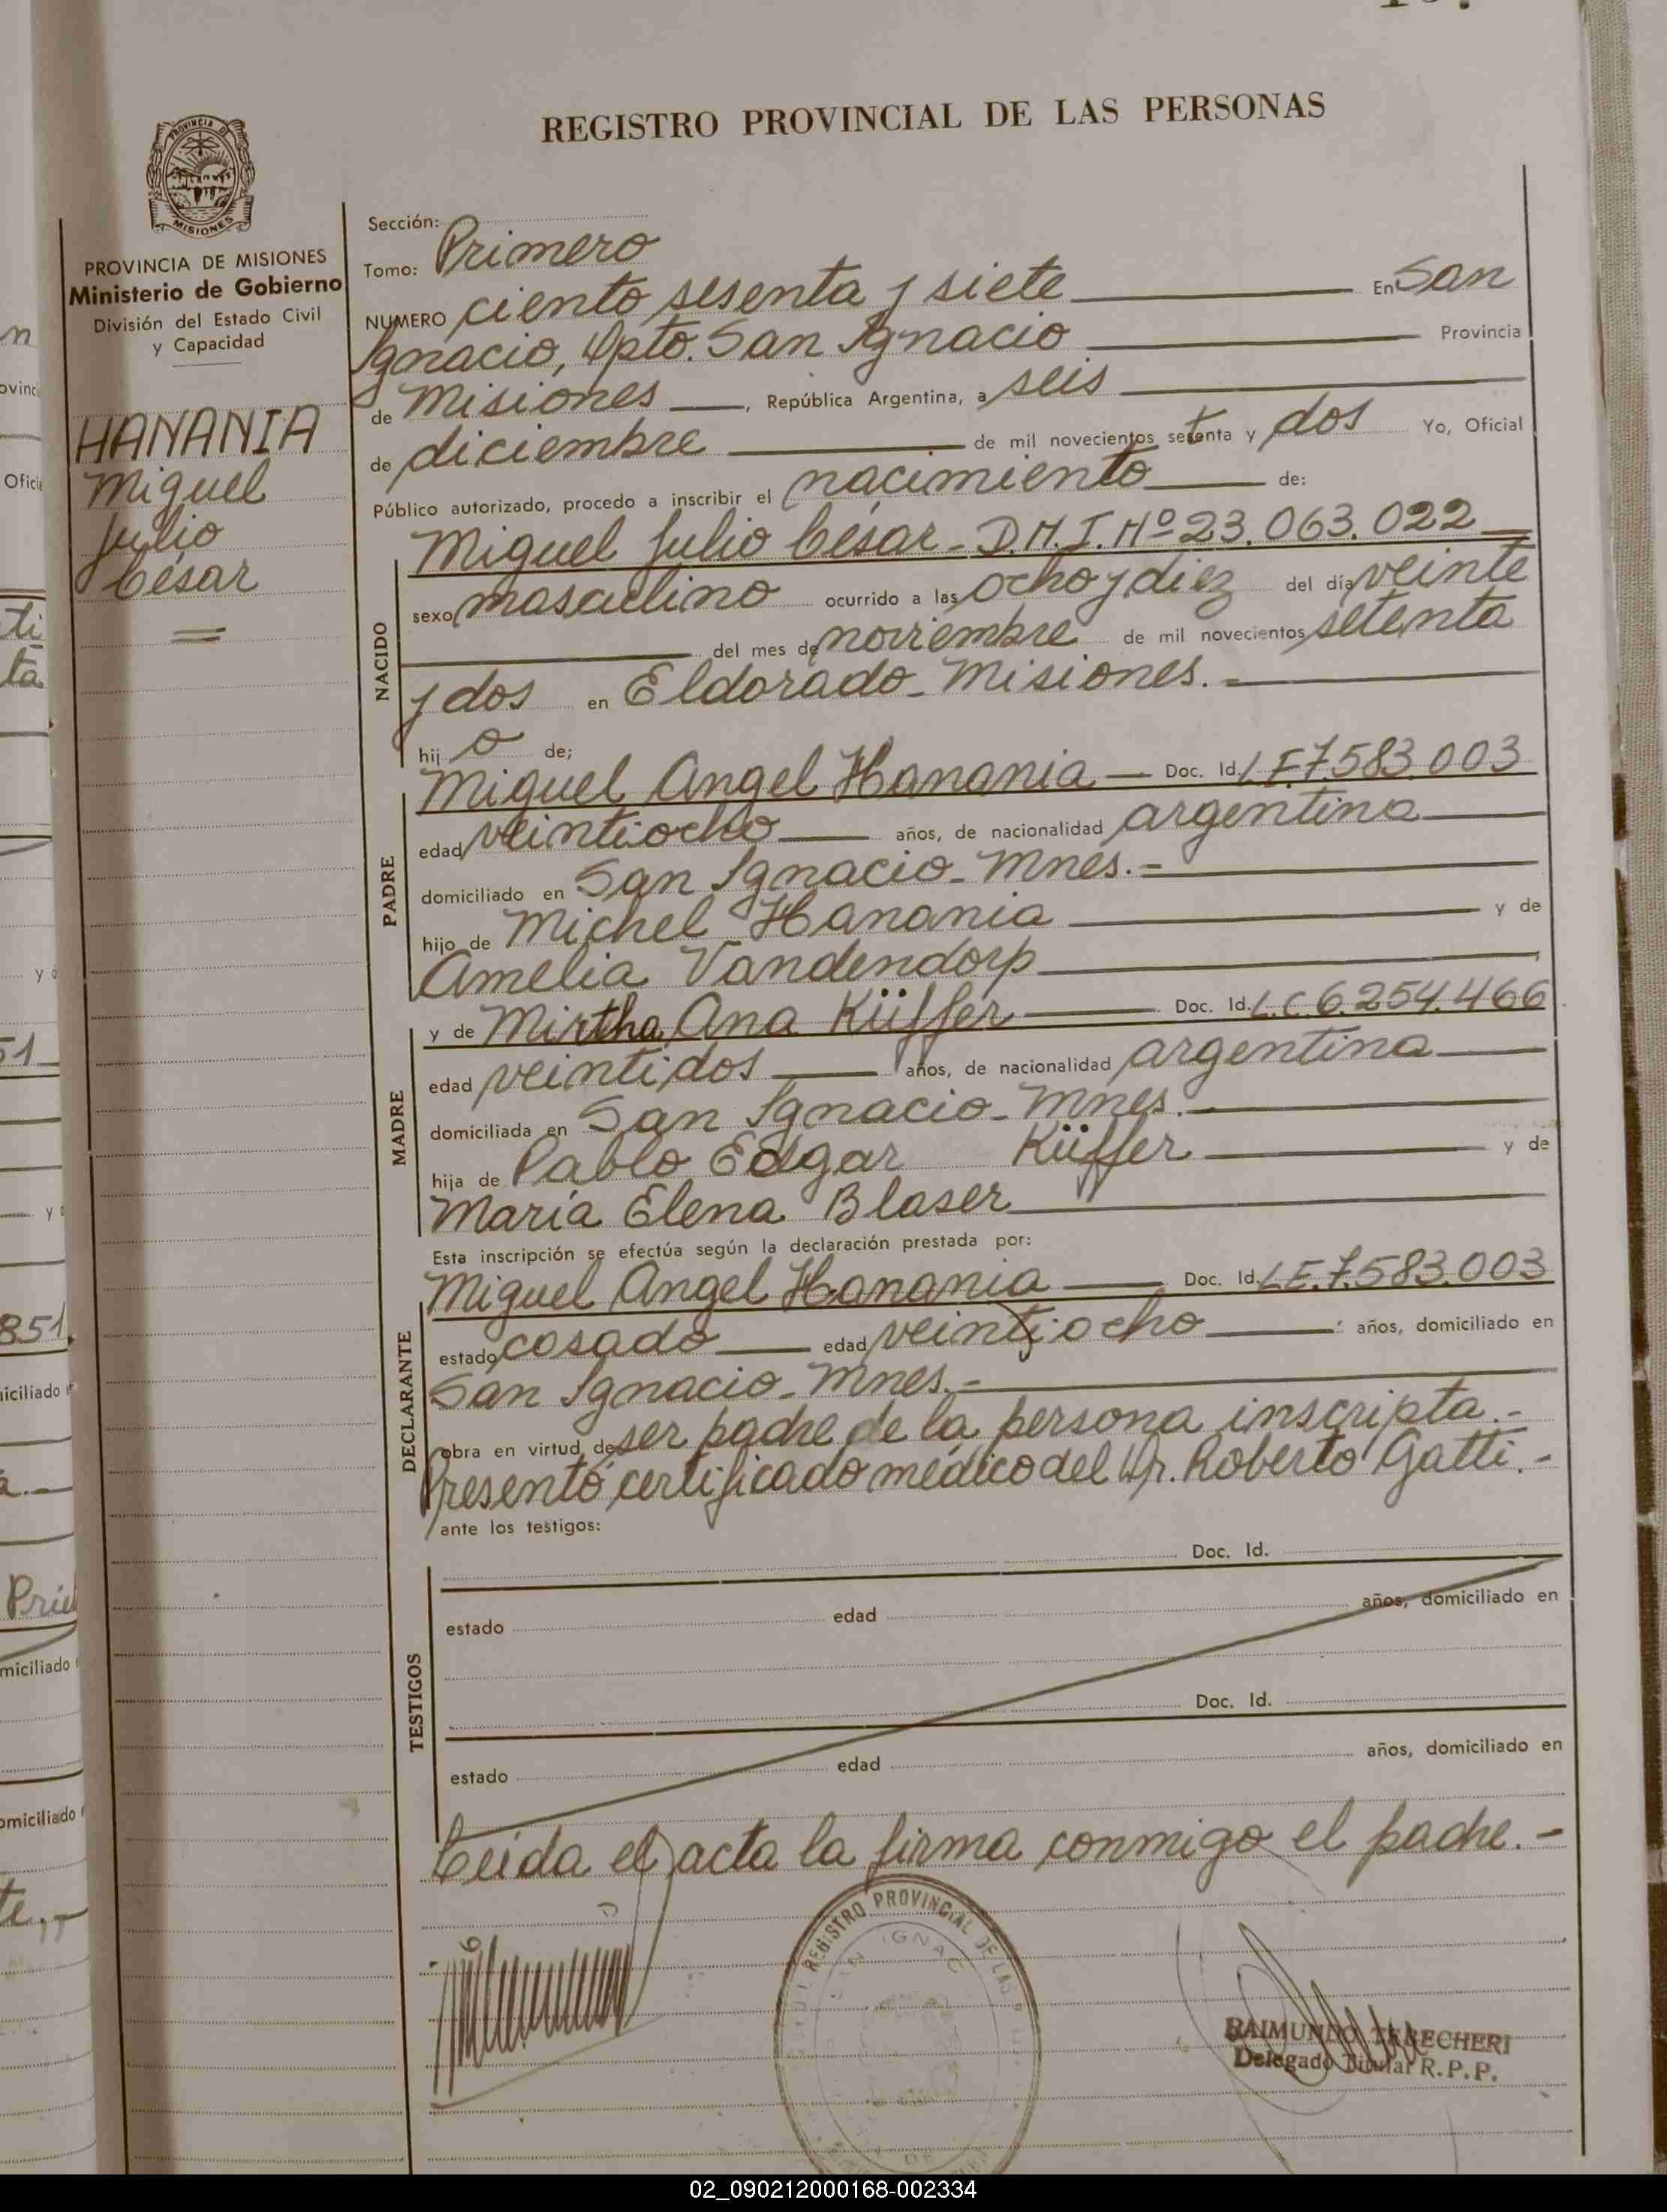 REGISTRO PROVINCIAL DE LAS PERSONAS
PROVINCIA DE
MISIONES
PROVINCIA DE MISIONES
Ministerio de Gobierno
División del Estado Civil
y Capacidad
HANANIA
Miguel
Julio
César
Sección:
Tomo: Primero
NUMERO ciento sesenta y siete En San
Ignacio, Dpto. San Ignacio Provincia
de Misiones, República Argentina, a seis
de diciembre de mil novecientos setenta y dos Yo, Oficial
Público autorizado, procedo a inscribir el nacimiento de:
Miguel Julio César - D.N.I. Nº 23.063.022
NACIDO
sexo masculino ocurrido a las ocho y diez del día veinte
del mes de noviembre de mil novecientos setenta
y dos en Eldorado - Misiones. -
hij o de;
Miguel Angel Hanania — Doc. Id. L.E. 7.583.003
PADRE
edad veintiocho años, de nacionalidad argentina
domiciliado en San Ignacio - Mnes. -
hijo de Michel Hanania y de
Amelia Vandendorp
y de Mirtha Ana Küffer Doc. Id. L.C. 6.254.466
MADRE
edad veintidos años, de nacionalidad argentina
domiciliada en San Ignacio - Mnes. -
hija de Pablo Edgar Küffer y de
María Elena Blaser
Esta inscripción se efectúa según la declaración prestada por:
Miguel Angel Hanania Doc. Id. L.E. 7.583.003
DECLARANTE
estado casado edad veintiocho años, domiciliado en
San Ignacio - Mnes. -
obra en virtud de ser padre de la persona inscripta. -
Presentó certificado médico del Dr. Roberto Gatti. -
ante los testigos:
TESTIGOS
Doc. Id.
estado edad años, domiciliado en
Doc. Id.
estado edad años, domiciliado en
Leida el acta la firma conmigo el padre. -
REGISTRO PROVINCIAL DE LAS
SAN IGNAC
RAIMUNDO TERECHERI
Delegado Titular R.P.P.
02_090212000168-002334